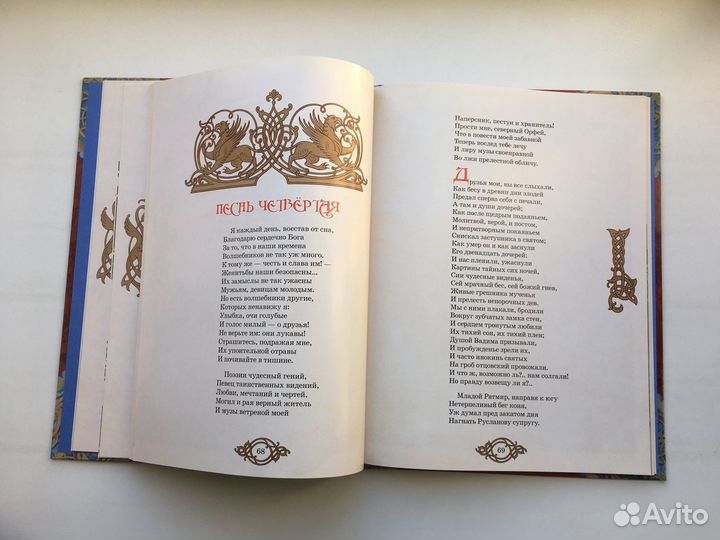 ПЕСНЬ ЧЕТВЁРТАЯ
Я каждый день, восстав от сна,
Благодарю сердечно Бога
За то, что в наши времена
Волшебников не так уж много.
К тому же — честь и слава им! —
Женитьбы наши безопасны...
Их замыслы не так ужасны
Мужьям, девицам молодым.
Но есть волшебники другие,
Которых ненавижу я:
Улыбка, очи голубые
И голос милый — о друзья!
Не верьте им: они лукавы!
Страшитесь, подражая мне,
Их упоительной отравы
И почивайте в тишине.
Поэзии чудесный гений,
Певец таинственных видений,
Любви, мечтаний и чертей,
Могил и рая верный житель
И музы ветреной моей
68
Наперсник, пестун и хранитель!
Прости мне, северный Орфей,
Что в повести моей забавной
Теперь вослед тебе лечу
И лиру музы своенравной
Во лжи прелестной обличу.
Друзья мои, вы все слыхали,
Как бесу в древни дни злодей
Предал сперва себя с печали,
А там и души дочерей;
Как после щедрым подаяньем,
Молитвой, верой, и постом,
И непритворным покаяньем
Снискал заступника в святом;
Как умер он и как заснули
Его двенадцать дочерей:
И нас пленили, ужаснули
Картины тайных сих ночей,
Сии чудесные виденья,
Сей мрачный бес, сей божий гнев,
Живые грешника мученья
И прелесть непорочных дев.
Мы с ними плакали, бродили
Вокруг зубчатых замка стен,
И сердцем тронутым любили
Их тихий сон, их тихий плен;
Душой Вадима призывали,
И пробужденье зрели их,
И часто инокинь святых
На гроб отцовский провожали.
И что ж, возможно ль?.. нам солгали!
Но правду возвещу ли я?..
Младой Ратмир, направя к югу
Нетерпеливый бег коня,
Уж думал пред закатом дня
Нагнать Русланову супругу.
69
Avito